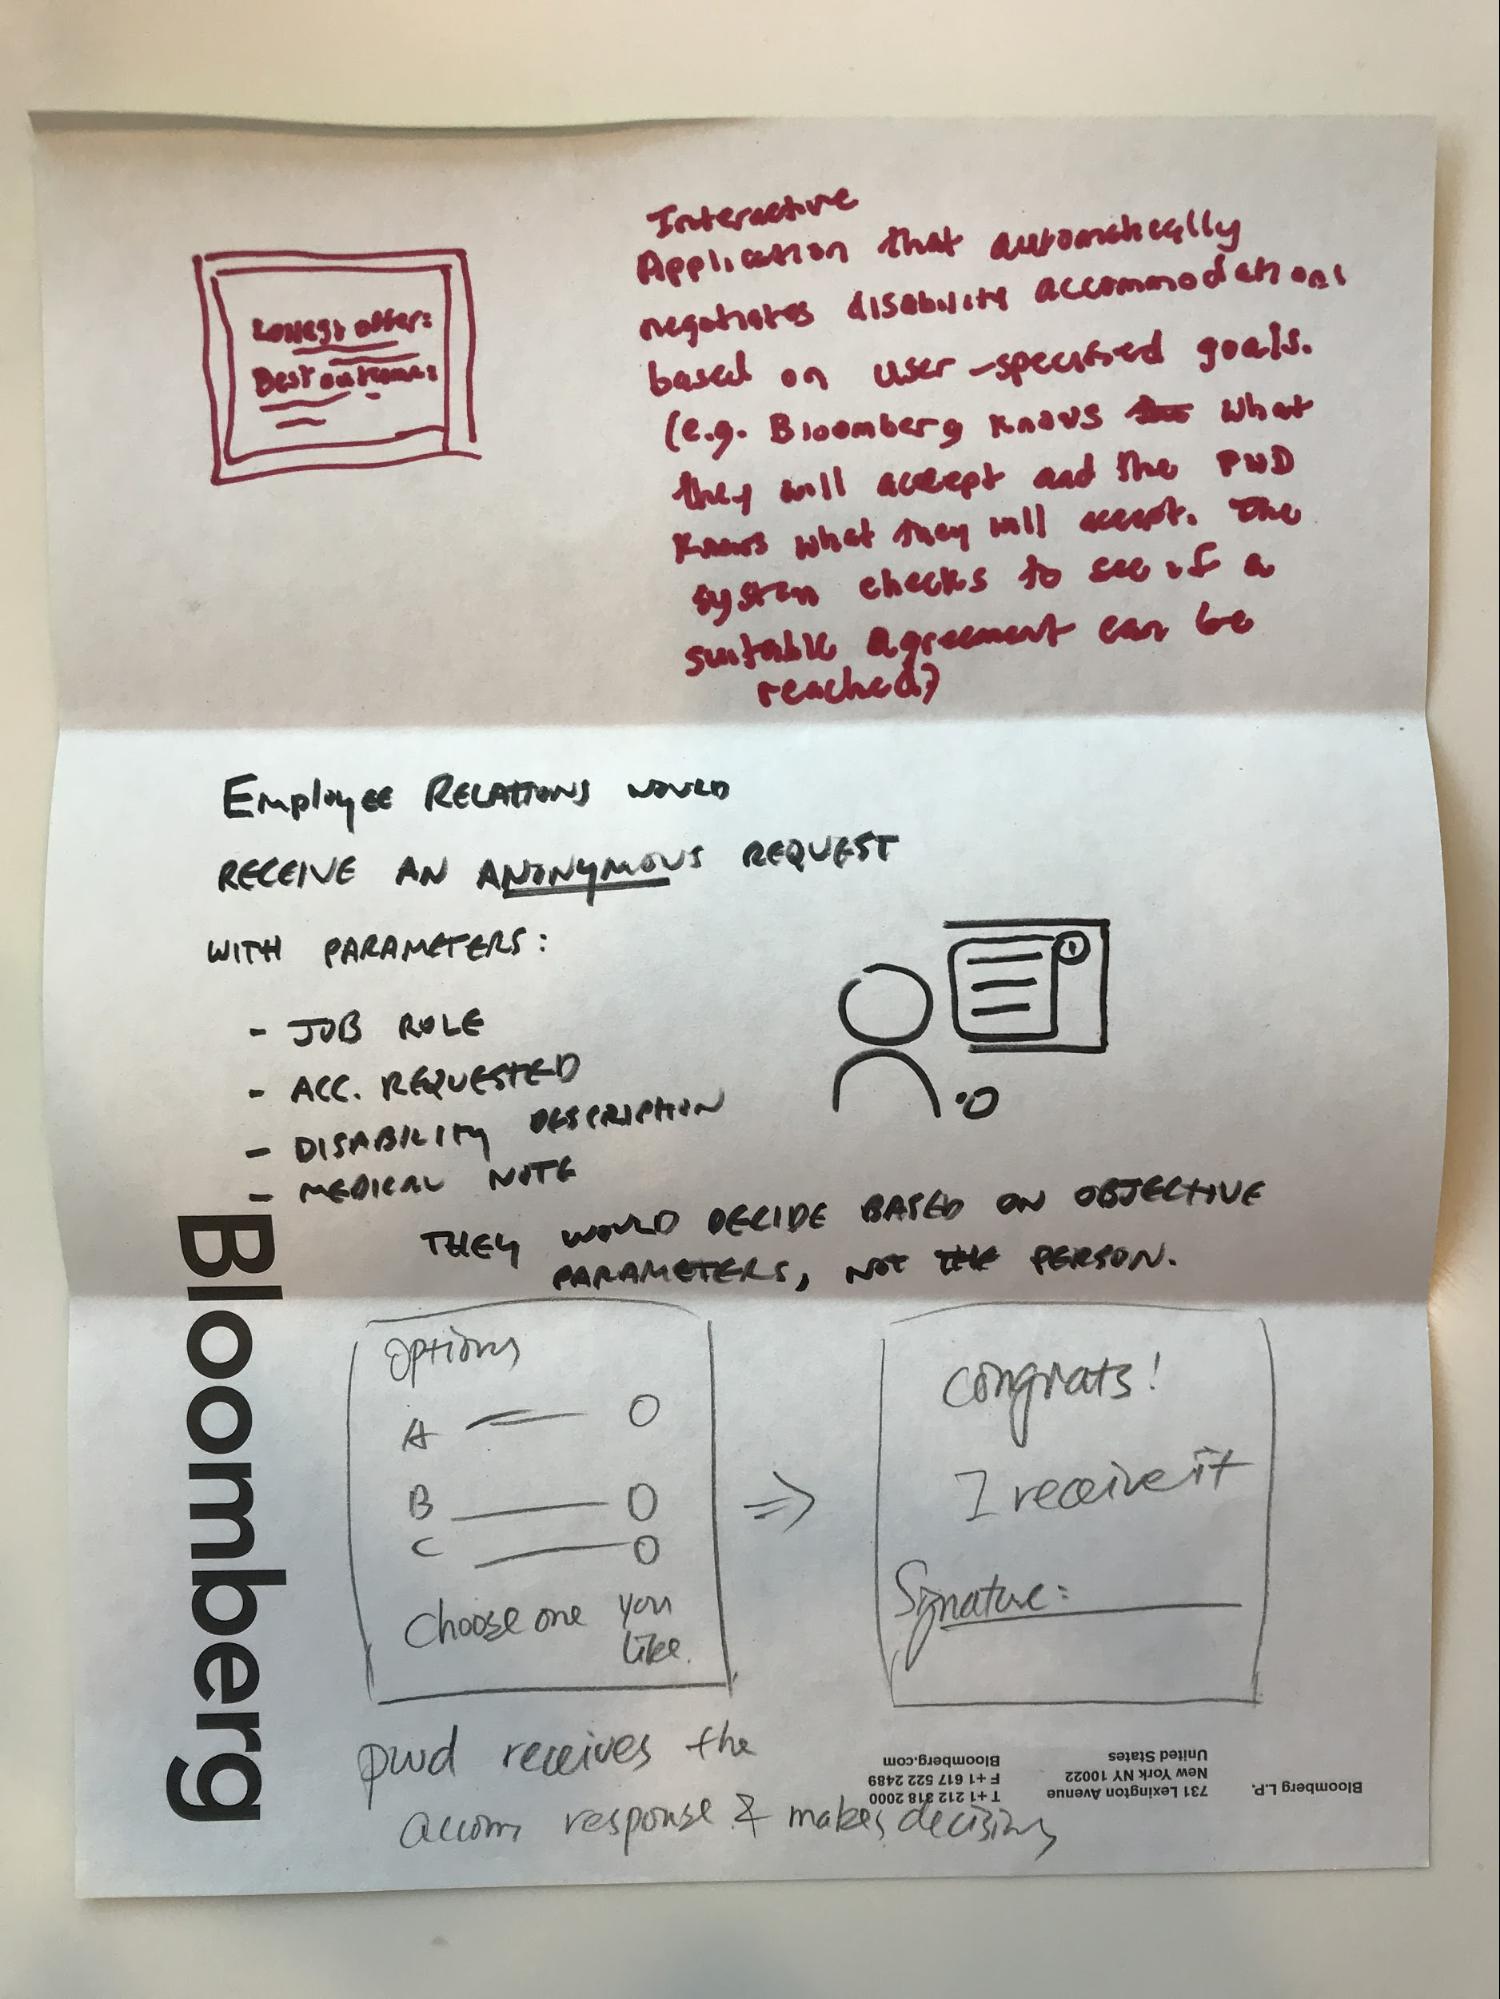 Interactive
Application that automatically
negotiates disability accommodations
based on user-specified goals.
(e.g. Bloomberg knows what
they will accept and the PWD
knows what they will accept. The
system checks to see if a
suitable agreement can be
reached)
Lowest offer:
Best outcome:
Employee RELATIONS WOULD
RECEIVE AN ANONYMOUS REQUEST
WITH PARAMETERS:
- JOB ROLE
- ACC. REQUESTED
- DISABILITY DESCRIPTION
- MEDICAL NOTE
THEY WOULD DECIDE BASED ON OBJECTIVE
PARAMETERS, NOT THE PERSON.
Options
A
B
C
Choose one you
like.
Congrats!
I receive it
Signature:
pwd receives the
accom response & makes decisions
Bloomberg
Bloomberg L.P.
731 Lexington Avenue
New York NY 10022
United States
T +1 212 318 2000
F +1 617 522 2489
Bloomberg.com